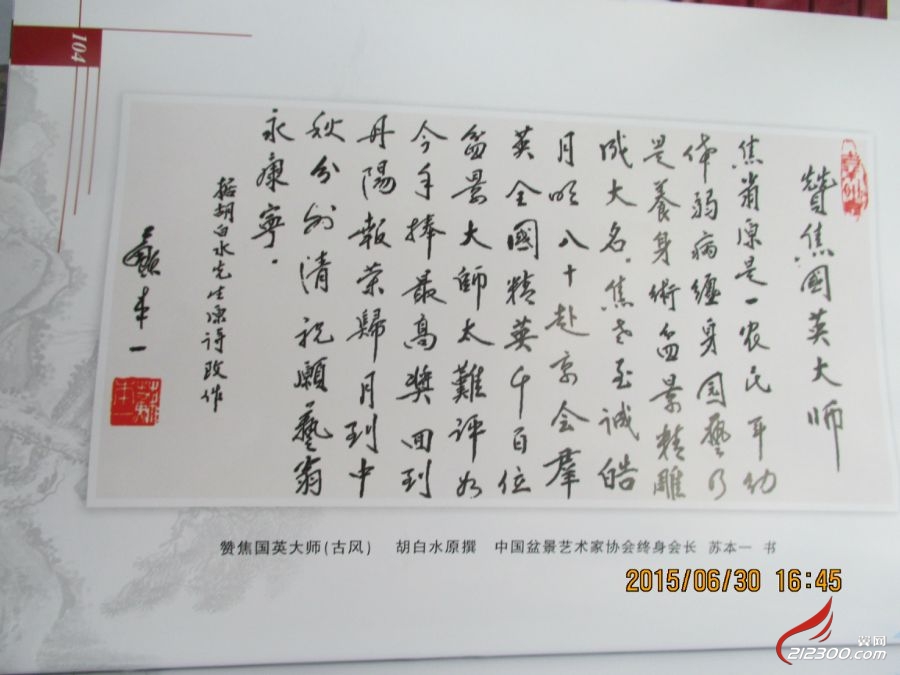 104
贊焦國英大师
焦翁原是一农民年幼
体弱病纏身园藝乃
是養身術盆景精雕
成大名.焦老至诚皓
月明八十赴京会羣
英全國精英千百位
盆景大師太難评如
今手捧最高奖回到
丹陽報荣歸月到中
秋分外清祝願藝翁
永康寧.
胡白水先生原诗改作
蘇本一
赞焦国英大师(古风) 胡白水原撰 中国盆景艺术家协会终身会长 苏本一 书
2015/06/30 16:45
翼网
212300.com